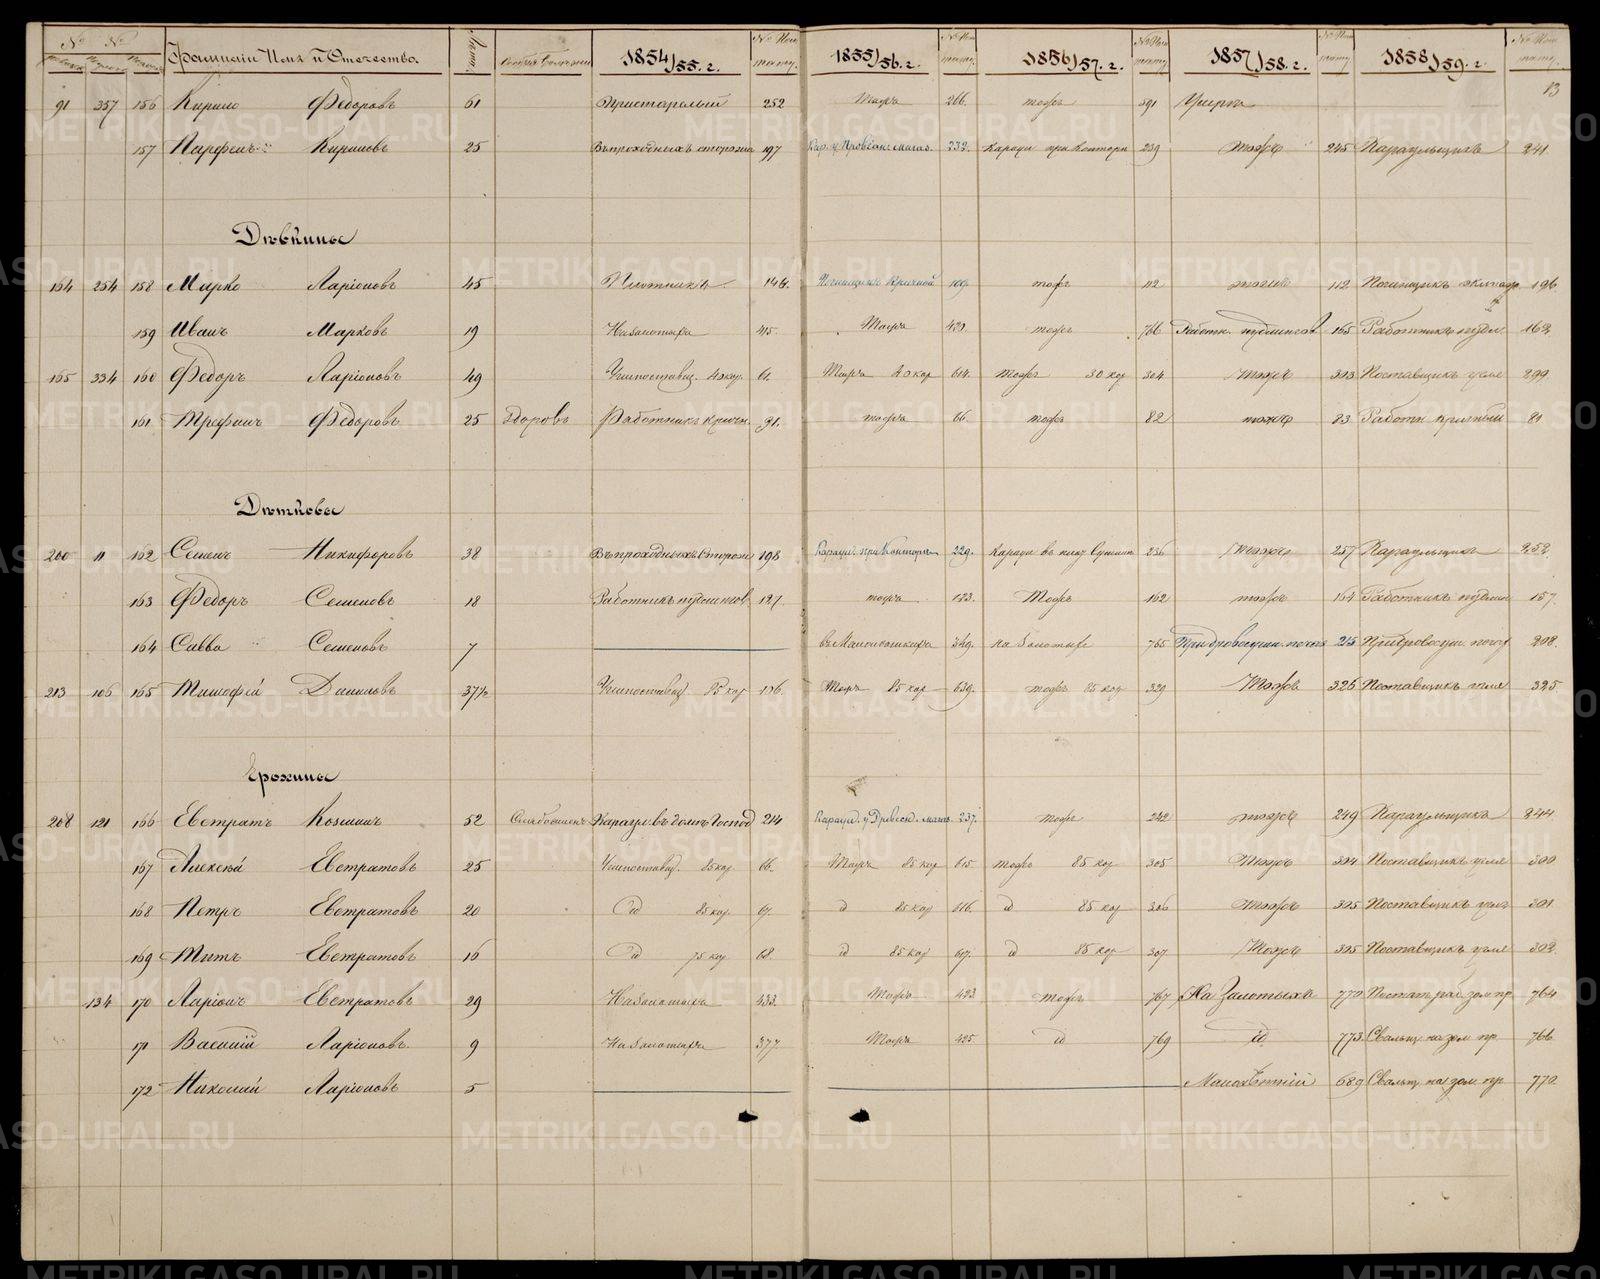 № № Фамиліи Имя и Отечество. 1854/55. г. 1855/56. г. 1856/57. г. 1857/58. г. 1858/59. г.
13
91 357 156 Кирило Федоровъ 61 Пристарелый 252 Тожъ 266. тожъ 391 Умеръ
157 Парфенъ Кириловъ 25 Въ проходныхъ сторожа 197 Кар. у Провіан. магаз. 232. Караул при Конторѣ 239 тожъ 245 Караульщикъ 241.
Дѣвкины
164 254 158 Марко Ларіоновъ 45 Плотникъ 146. 109. тожъ 112 тожъ 112 196.
159 Иванъ Марковъ 19 На золотыхъ 415. Тожъ 421. тожъ 766 Работн. пудлингов. 165 Работникъ пудлин 162
165 334 160 Федоръ Ларіоновъ 49 Углепоставщ. 61. Тожъ 614. тожъ 30 кор 304 тожъ 303 Поставщикъ угля 299
161 Трефилъ Федоровъ 25 Здоровъ Работникъ кричн. 91. тожъ 66. тожъ 82 тожъ 83 Работн кричный 81
Дѣтковы
200 11 162 Семенъ Никифоровъ 38 Въ проходныхъ Сторож 198 Караул. при Конторѣ 229. 236 тожъ 257 Караульщикъ 252.
163 Федоръ Семеновъ 18 Работникъ пудлингов. 127. тожъ 123. Тожъ 162 тожъ 164 Работникъ пудлин 157.
164 Савва Семеновъ 7 349. на Золотыхъ 765 При дровосушн. печахъ 215 При дровосуш. печах 208.
213 106 165 Тимофей Даниловъ 37½ Углепоставщ 85 кор 136. Тожъ 85 кор 639. тожъ 85 кор 329 Тожъ 326 Поставщикъ угля 325.
Ерохины
208 121 166 Евстратъ Козминъ 52 Слабосиленъ Караул. въ домѣ Господ 214 Караул. у Древесн. магаз. 237. тожъ 242 тожъ 249 Караульщикъ 244
167 Алексѣй Евстратовъ 25 Углепоставщ. 85 кор. 66. Тожъ 85 кор 615. тожъ 85 кор 305 Тожъ 304 Поставщикъ угля 300
168 Петръ Евстратовъ 20 id 85 кор. 67. id 85 кор 616. id 85 кор 306 тожъ 305 Поставщикъ угля 301
169 Титъ Евстратовъ 16 id 75 кор 68. id 85 кор 617. id 85 кор 307 Тожъ 305 Поставщикъ угля 302.
134 170 Ларіонъ Евстратовъ 29 На золотыхъ 433. Тожъ 423 тожъ 767 На Золотыхъ 770 764
171 Василій Ларіоновъ. 9 На золотыхъ 377. Тожъ 425. id 769 id 773. Свальщ. на зол. пр. 766
172 Николай Ларіоновъ 5 Малолѣтній 689 Свальщ. на зол. пр 770
METRIKI.GASO-URAL.RU